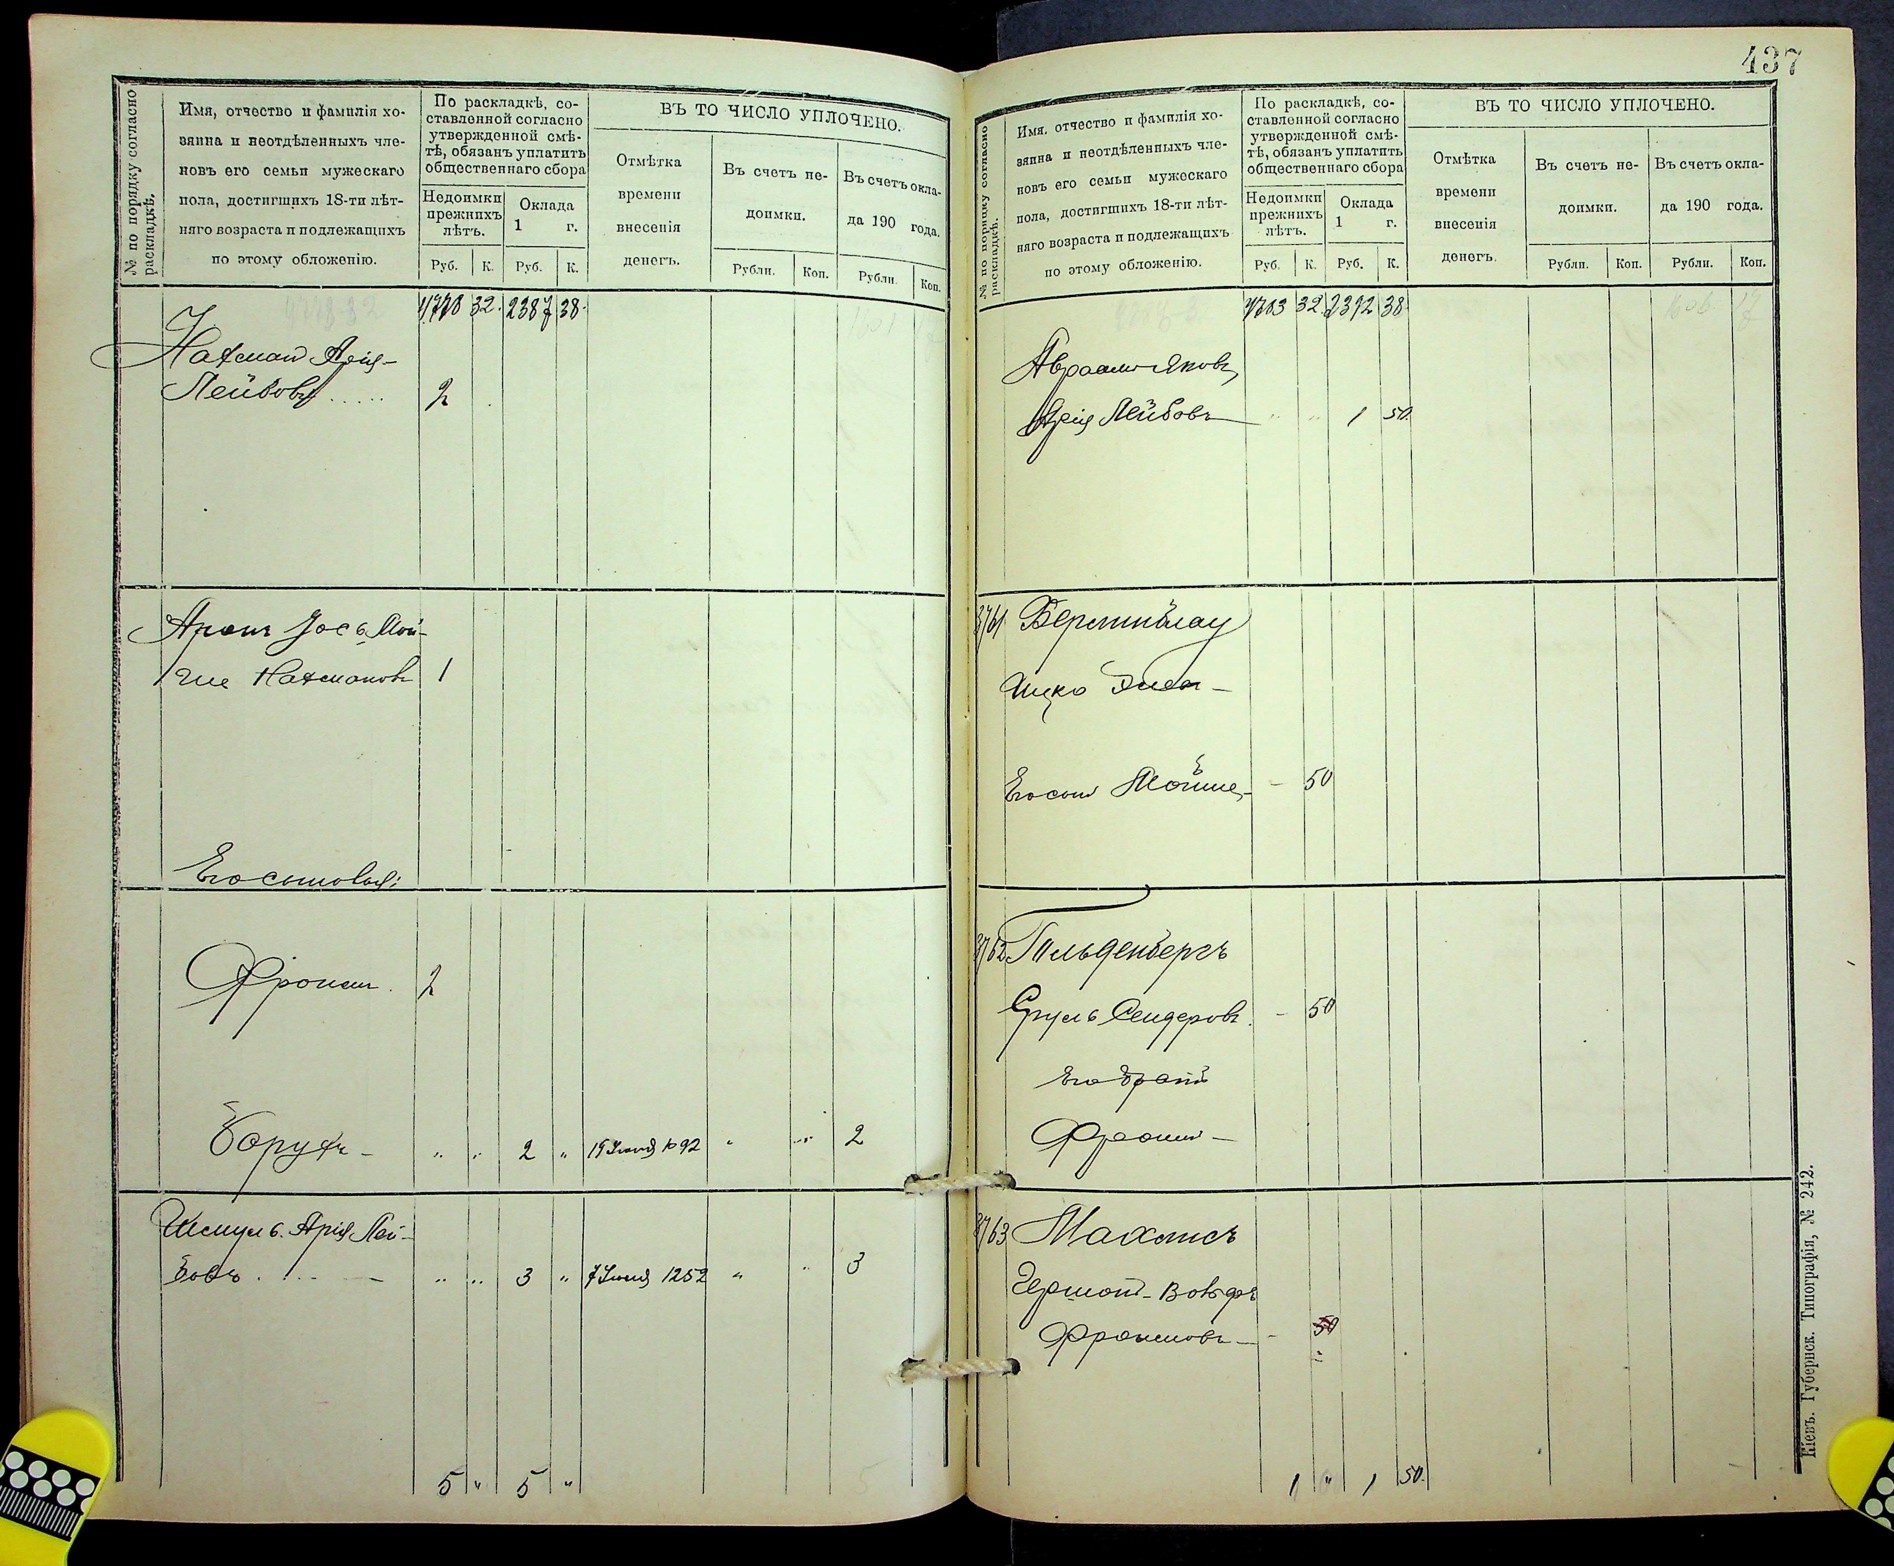 437
№ по порядку согласно
раскладкѣ.
Имя, отчество и фамилія хо-
зяина и неотдѣленныхъ чле-
новъ его семьи мужескаго
пола, достигшихъ 18-ти лѣт-
няго возраста и подлежащихъ
по этому обложенію.
По раскладкѣ, со-
ставленной согласно
утвержденной смѣ-
тѣ, обязанъ уплатить
общественнаго сбора
Недоимки
прежнихъ
лѣтъ.
Оклада
1 г.
Руб. К. Руб. К.
ВЪ ТО ЧИСЛО УПЛОЧЕНО.
Отмѣтка
времени
внесенія
денегъ.
Въ счетъ не-
доимки.
Рубли. Коп.
Въ счетъ окла-
да 190 года.
Рубли. Коп.
32. 2387 38.
Нахман Арія-
Лейбовъ ..... 2
Арон Іось Мой-
ше Нахмановъ 1
Его сыновья:
Фроим. 2
Борухъ - " " 2 " 19 Іюня " " 2
Шмуль. Арія Лей-
бовъ . . . . — " " 3 " 7 Іюня 1252 " " 3
5 " 5 "
№ по порядку согласно
раскладкѣ.
Имя, отчество и фамилія хо-
зяина и неотдѣленныхъ чле-
новъ его семьи мужескаго
пола, достигшихъ 18-ти лѣт-
няго возраста и подлежащихъ
по этому обложенію.
По раскладкѣ, со-
ставленной согласно
утвержденной смѣ-
тѣ, обязанъ уплатить
общественнаго сбора
Недоимки
прежнихъ
лѣтъ.
Оклада
1 г.
Руб. К. Руб. К.
ВЪ ТО ЧИСЛО УПЛОЧЕНО.
Отмѣтка
времени
внесенія
денегъ.
Въ счетъ не-
доимки.
Рубли. Коп.
Въ счетъ окла-
да 190 года.
Рубли. Коп.
32. 2392 38.
Авраам-Яковъ
Арія Лейбовъ " " 1 50.
3761
Ицко
Его сын Мойше - - 50
3762 Гольденбергъ
Сруль Сендеровъ. - 50
Его братъ
Фроим -
3763 Махлисъ
Гершон-Вольфъ
Фроимовъ - - 50
1 " 1 50.
Кіевъ. Губернск. Типографія, № 242.